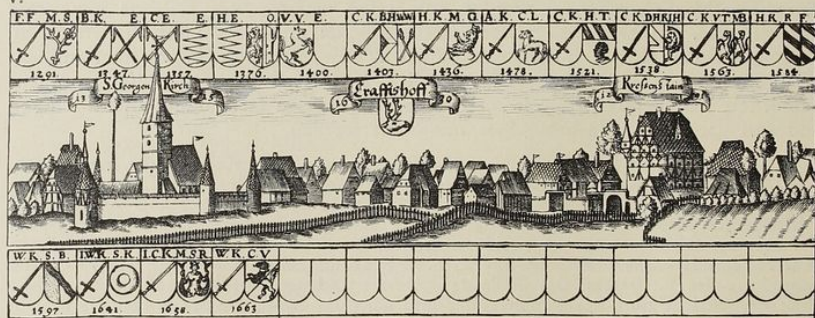 F.F M.S. B.K. E C.E. E. H.E. O. V.V. E. C.K.B.H.W.W. H.K.M.G. A.K.C.L. C.K.H.T. C K D H R I H C K V T M B H.R.R.F.
1291. 1347. 1357. 1376. 1400. 1403. 1436. 1478. 1521. 1538 1563. 1584
13 S. Georgen Kirch 15
16 Craffishoff 30
12
W.K.S.B. I W K S.K. I.C K M.S R. W.K.C.V
1597. 1641. 1658. 1663